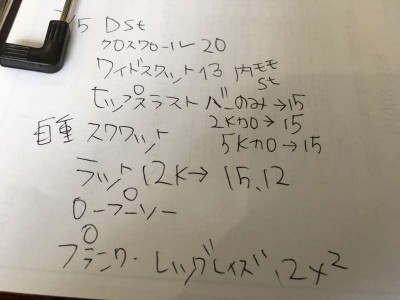 /5 DSt
クロスクロール 20
ワイドスクワット 13 内モモ
St
ヒップスラスト バーのみ→15
2K加→15
自重 スクワット 5K加→15
ラット 12K→ 15, 12
ロープーソー
プランク. レッグレイズ 12×2